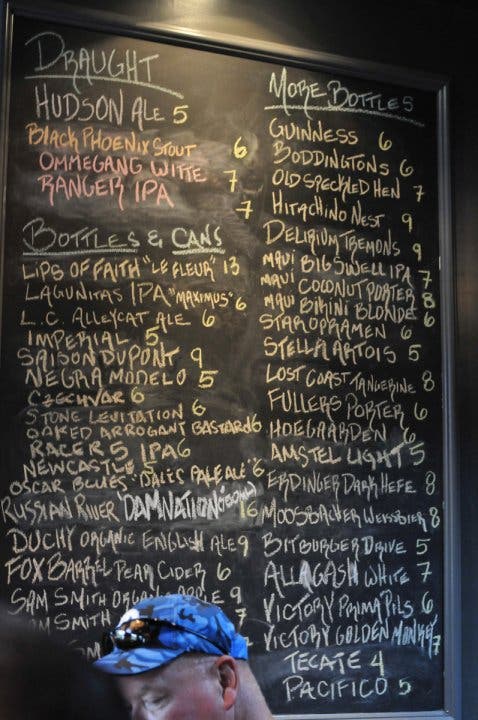 DRAUGHT
HUDSON ALE 5
BLACK PHOENIX STOUT 6
OMMEGANG WITTE 7
RANGER IPA 7
BOTTLES & CANS
LIPS OF FAITH "LE FLEUR" 13
LAGUNITAS IPA "MAXIMUS" 6
L.C. ALLEYCAT ALE 6
IMPERIAL 5
SAISON DUPONT 9
NEGRA MODELO 5
CZECHVAR 6
STONE LEVITATION 6
OAKED ARROGANT BASTARD 6
RACER 5 IPA 6
NEWCASTLE 5
OSCAR BLUES "DALES PALE ALE" 6
RUSSIAN RIVER "DAMNATION" 16
DUCHY ORGANIC ENGLISH ALE 9
FOX BARREL PEAR CIDER 6
SAM SMITH ORGANIC APPLE 9
SAM SMITH
MORE BOTTLES
GUINNESS 6
BODDINGTONS 6
OLD SPECKLED HEN 7
HITACHINO NEST 9
DELIRIUM TREMONS 9
MAUI BIG SWELL IPA 7
MAUI COCONUT PORTER 8
MAUI BIKINI BLONDE 6
STAROPRAMEN 6
STELLA ARTOIS 5
LOST COAST TANGERINE 8
FULLERS PORTER 6
HOEGAARDEN 6
AMSTEL LIGHT 5
ERDINGER DARK HEFE 8
MOOSBACHER WEISSBIER 8
BITBURGER DRIVE 5
ALLAGASH WHITE 7
VICTORY PRIMA PILS 6
VICTORY GOLDEN MONKEY 7
TECATE 4
PACIFICO 5